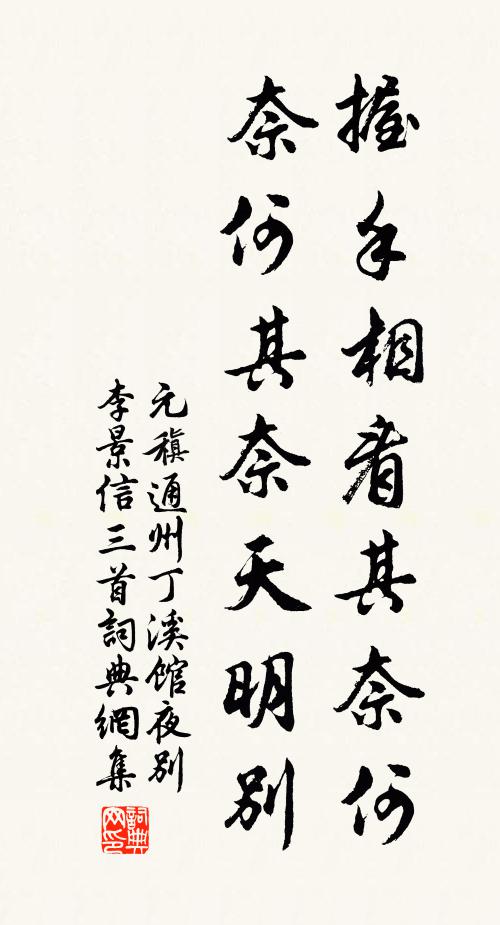 握手相看其奈何
奈何其奈天明別
元稹通州丁溪館夜別
李景信三首詞典網集
詞典
网印